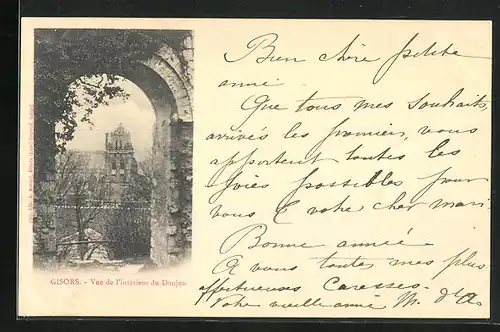 Bien chère petite
amie
Que tous mes souhaits,
arrivés les premiers, vous
apportent toutes les
joies possibles pour
vous & votre cher mari
Bonne année
A vous toutes mes plus
affectueuses Caresses.
Votre vieille amie M. d'A.
GISORS. - Vue de l'intérieur du Donjon